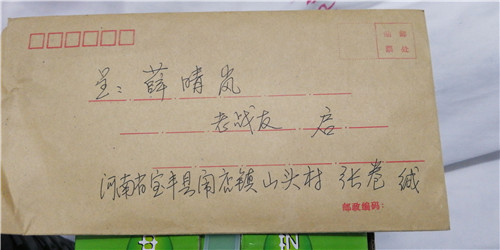 贴邮
票处
呈：薛晴岚
老战友 启
河南省宝丰县闹店镇山头村 张卷 缄
邮政编码：